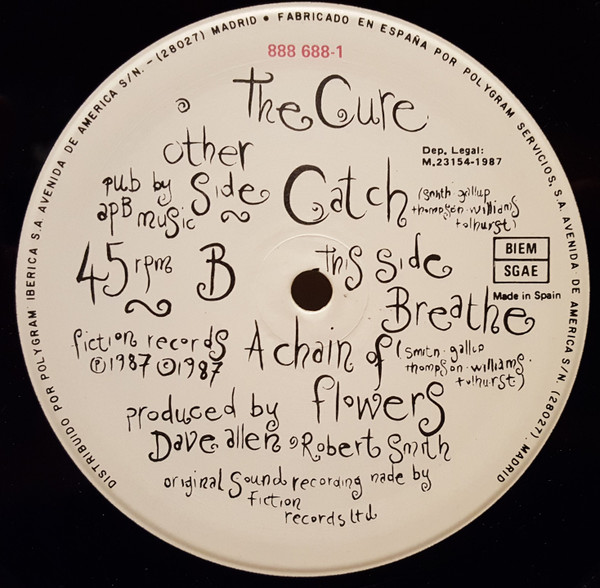 DISTRIBUIDO POR POLYGRAM IBERICA S.A. AVENIDA DE AMERICA S/N. - (28027) MADRID • FABRICADO EN ESPAÑA POR POLYGRAM SERVICIOS, S.A. AVENIDA DE AMERICA S/N. (28027). MADRID
888 688-1
The Cure
other
Side
Dep. Legal:
M.23154-1987
pub by
apB music
Catch
(smith gallup
thompson-williams
tolhurst)
45 rpm B
this side
BIEM
SGAE
Made in Spain
Breathe
fiction records
℗1987 ©1987
A chain of
flowers
(smith-gallup
thompson-williams.
tolhurst)
produced by
Dave allen & Robert Smith
original Sound recording made by
fiction
records ltd